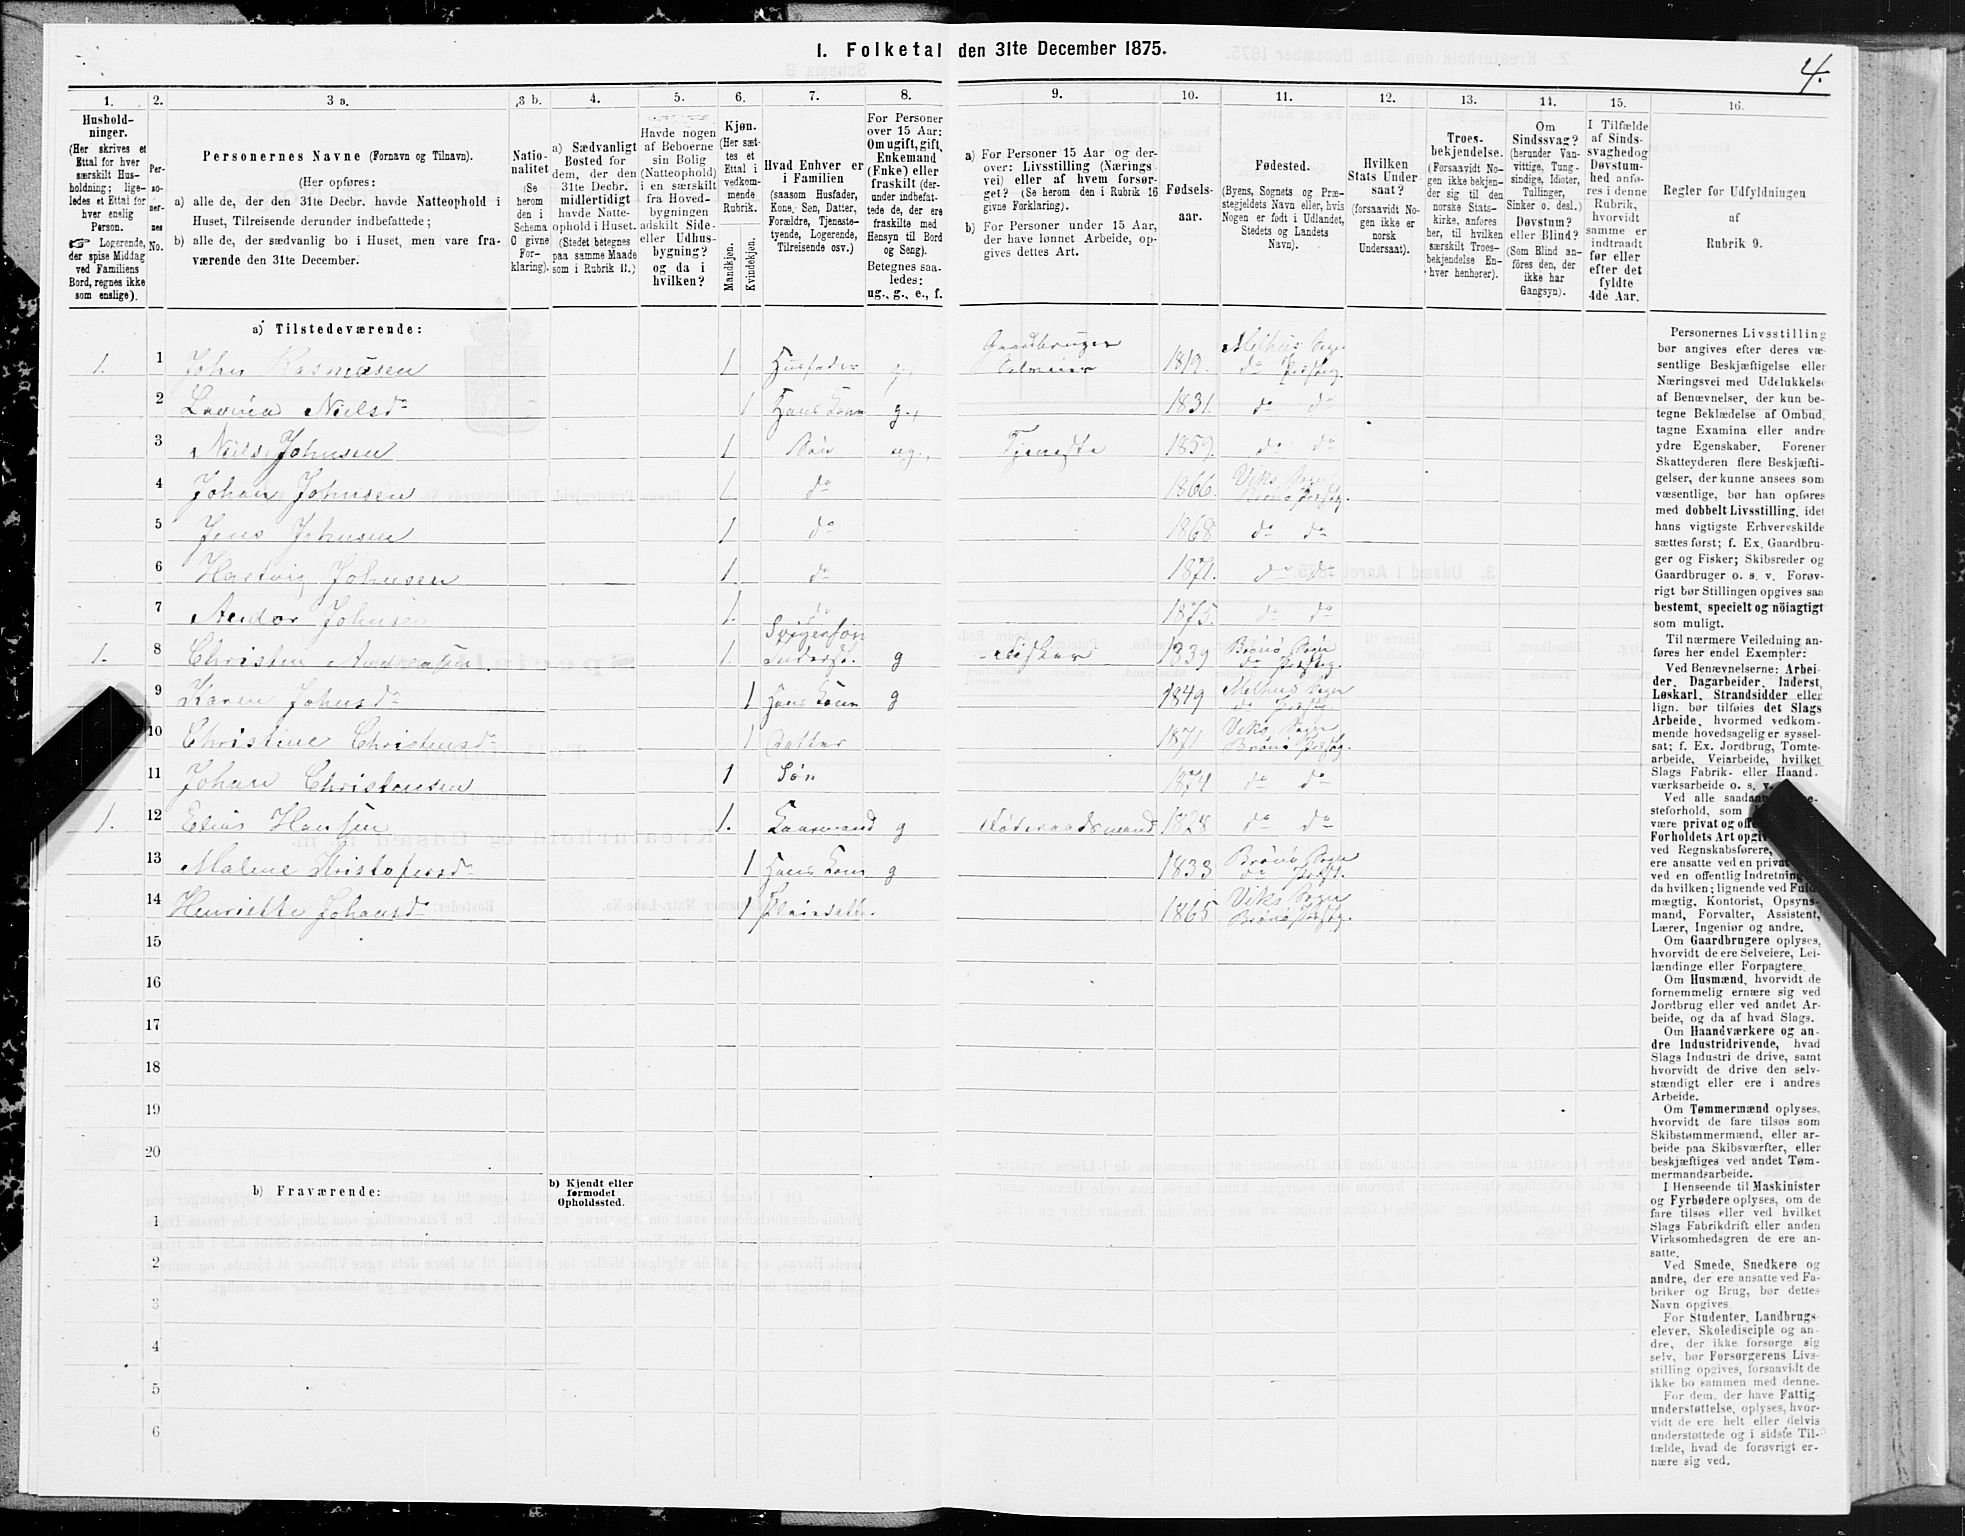 1. Folketal den 31te December 1875.
4.
1. 2. 3 a. 3 b. 4. 5. 6. 7. 8. 9. 10. 11. 12. 13. 14. 15. 16.
Hushold-
ninger.
(Her skrives et
Ettal for hver
særskilt Hus-
holdning; lige-
ledes et Ettal for
hver enslig
Person.
☞ Logerende,
der spise Middag
ved Familiens
Bord, regnes ikke
som enslige).
Per-
so-
ner-
nes
No.
Personernes Navne (Fornavn og Tilnavn).
(Her opføres:
a) alle de, der den 31te Decbr. havde Natteophold i
Huset, Tilreisende derunder indbefattede;
b) alle de, der sædvanlig bo i Huset, men vare fra-
værende den 31te December.
Natio-
nalitet
(Se
herom
den i
Schema
C givne
For-
klaring).
a) Sædvanligt
Bosted for
dem, der den
31te Decbr.
midlertidigt
havde Natte-
ophold i Huset.
(Stedet betegnes
paa samme Maade
som i Rubrik 11.)
Havde nogen
af Beboerne
sin Bolig
(Natteophold)
i en særskilt
fra Hoved-
bygningen
adskilt Side-
eller Udhus-
bygning?
og da i
hvilken?
Kjøn.
(Her sæt-
tes et
Ettal i
vedkom-
mende
Rubrik.
Mandkjøn.
Kvindekjøn.
Hvad Enhver er
i Familien
(saasom Husfader,
Kone, Søn, Datter,
Forældre, Tjeneste-
tyende, Logerende,
Tilreisende osv.)
For Personer
over 15 Aar:
Om ugift, gift,
Enkemand
(Enke) eller
fraskilt (der-
under indbefat-
tede de, der ere
fraskilte med
Hensyn til Bord
og Seng).
Betegnes saa-
ledes:
ug., g., e., f.
a) For Personer 15 Aar og der-
over: Livsstilling (Nærings-
vei) eller af hvem forsør-
get? (Se herom den i Rubrik 16
givne Forklaring).
b) For Personer under 15 Aar,
der have lønnet Arbeide, op-
gives dettes Art.
Fødsels-
aar.
Fødested.
(Byens, Sognets og Præ-
stegjeldets Navn eller, hvis
Nogen er født i Udlandet,
Stedets og Landets
Navn).
Hvilken
Stats Under-
saat?
(forsaavidt No-
gen ikke er
norsk
Undersaat).
Troes-
bekjendelse.
(Forsaavidt No-
gen ikke bekjen-
der sig til den
norske Stats-
kirke, anføres
her, til hvilken
særskilt Troes-
bekjendelse En-
hver henhører).
Om
Sindssvag?
(herunder Van-
vittige, Tung-
sindige, Idioter,
Tullinger,
Sinker o. desl.)
Døvstum?
eller Blind?
(Som Blind an-
føres den, der
ikke har
Gangsyn).
I Tilfælde
af Sinds-
svaghed og
Døvstum-
hed anfø-
res i denne
Rubrik,
hvorvidt
samme er
indtraadt
før eller
efter det
fyldte
4de Aar.
Regler for Udfyldningen
af
Rubrik 9.
a) Tilstedeværende:
1. 1 John Rasmusen 1. Husfader g., Gaardbruger Selveier 1819. Melhus Sogn do Præstg.
2 Lovisa Nielsd. 1 Hans Kone g., 1831. do do
3 Nils Johnsen 1 Søn ug., Tjeneste 1859. do do
4 Johan Johnsen 1. do 1866. Viks Sogn Brønø Præstg.
5 Jens Johnsen 1. do 1868. do do
6 Hartvig Johnsen 1. do 1871. do do
7 Andor Johnsen 1. do 1875. do do
1. 8 Christen Andreasen. 1. Svigersøn Inderst. g Fisker 1839 Brønø Sogn do Præstg.
9 Karen Johnsd. 1 Hans Kone g 1849 Melhus Sogn do Præstg.
10 Christine Christensd. 1 Datter 1871 Viks Sogn Brønø Præstg.
11 Johan Christensen 1 Søn 1874 do do
1. 12 Elias Hansen 1. Kaarmand g Føderaadsmand 1828 do do
13 Malene Kristofersd. 1 Hans Kone g 1833 Brønø Sogn do Præst.
14 Henriette Johansd. 1 Pleiedatter. 1865 Viks Sogn Brønø Præstg.
15
16
17
18
19
20
b) Fraværende:
b) Kjendt eller
formodet
Opholdssted.
1
2
3
4
5
6
Personernes Livsstilling
bør angives efter deres væ-
sentlige Beskjæftigelse eller
Næringsvei med Udelukkelse
af Benævnelser, der kun be-
tegne Beklædelse af Ombud,
tagne Examina eller andre
ydre Egenskaber. Forener
Skatteyderen flere Beskjæfti-
gelser, der kunne ansees som
væsentlige, bør han opføres
med dobbelt Livsstilling, idet
hans vigtigste Erhvervskilde
sættes først; f. Ex. Gaardbru-
ger og Fisker; Skibsreder og
Gaardbruger o. s. v. Forøv-
rigt bør Stillingen opgives saa
bestemt, specielt og nöiagtigt
som muligt.
Til nærmere Veiledning an-
føres her endel Exempler:
Ved Benævnelserne: Arbei-
der, Dagarbeider, Inderst,
Løskarl, Strandsidder eller
lign. bør tilføies det Slags
Arbeide, hvormed vedkom-
mende hovedsagelig er syssel-
sat; f. Ex. Jordbrug, Tomte-
arbeide, Veiarbeide, hvilket
Slags Fabrik- eller Haand-
værksarbeide o. s. v.
Ved alle
steforhold, som
være privat og
Forholdets Art
ved Regnskabsførere,
ere ansatte ved en privat
ved en offentlig Indretning
da hvilken; lignende ved
mægtig, Kontorist, Opsyns-
mand, Forvalter, Assistent,
Lærer, Ingeniør og andre.
Om Gaardbrugere oplyses,
hvorvidt de ere Selveiere, Lei-
lændinge eller Forpagtere.
Om Husmænd, hvorvidt de
fornemmelig ernære sig ved
Jordbrug eller ved andet Ar-
beide, og da af hvad Slags.
Om Haandværkere og an-
dre Industridrivende, hvad
Slags Industri de drive, samt
hvorvidt de drive den selv-
stændigt eller ere i andres
Arbeide.
Om Tømmermænd oplyses,
hvorvidt de fare tilsøs som
Skibstømmermænd, eller ar-
beide paa Skibsværfter, eller
beskjæftiges ved andet Tøm-
mermandsarbeide.
I Henseende til Maskinister
og Fyrbødere oplyses, om de
fare tilsøs eller ved hvilket
Slags Fabrikdrift eller anden
Virksomhedsgren de ere an-
satte.
Ved Smede, Snedkere og
andre, der ere ansatte ved Fa-
briker og Brug, bør dettes
Navn opgives.
For Studenter, Landbrugs-
elever, Skoledisciple og an-
dre, der ikke forsørge sig
selv, bør Forsørgerens Livs-
stilling opgives, forsaavidt de
ikke bo sammen med denne.
For dem, der have Fattig-
understøttelse, oplyses, hvor-
vidt de ere helt eller delvis
understøttede og i sidste Til-
fælde, hvad de forøvrigt er-
nære sig ved.